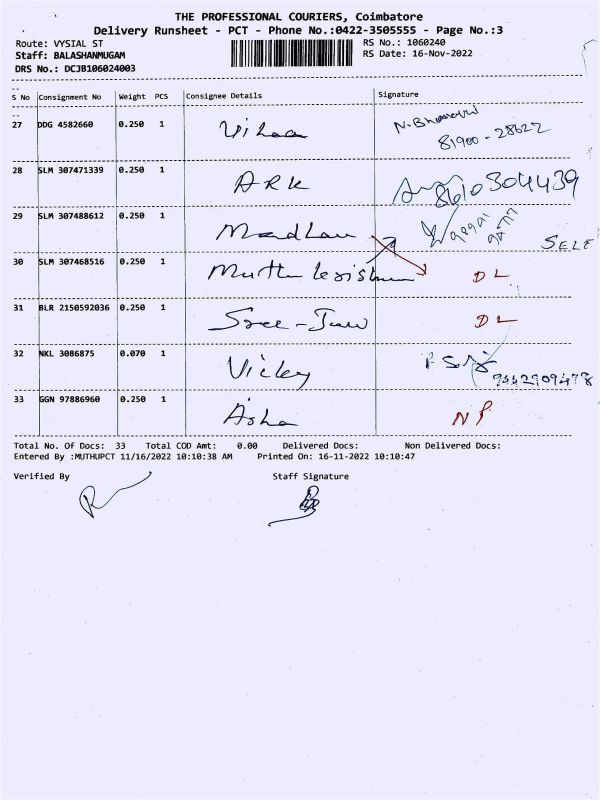 THE PROFESSIONAL COURIERS, Coimbatore
Delivery Runsheet - PCT - Phone No.:0422-3505555 - Page No.:3
Route: VYSIAL ST RS No.: 1060240
Staff: BALASHANMUGAM RS Date: 16-Nov-2022
DRS No.: DCJB106024003
S No Consignment No Weight PCS Consignee Details Signature
27 DDG 4582660 0.250 1
81900-28622
28 SLM 307471339 0.250 1 ARK 8610304439
29 SLM 307488612 0.250 1 Madhau SELF
30 SLM 307468516 0.250 1 DL
31 BLR 2150592036 0.250 1 DL
32 NKL 3086875 0.070 1 Vicky
33 GGN 97886960 0.250 1 Asha NP
Total No. Of Docs: 33 Total COD Amt: 0.00 Delivered Docs: Non Delivered Docs:
Entered By :MUTHUPCT 11/16/2022 10:10:38 AM Printed On: 16-11-2022 10:10:47
Verified By Staff Signature